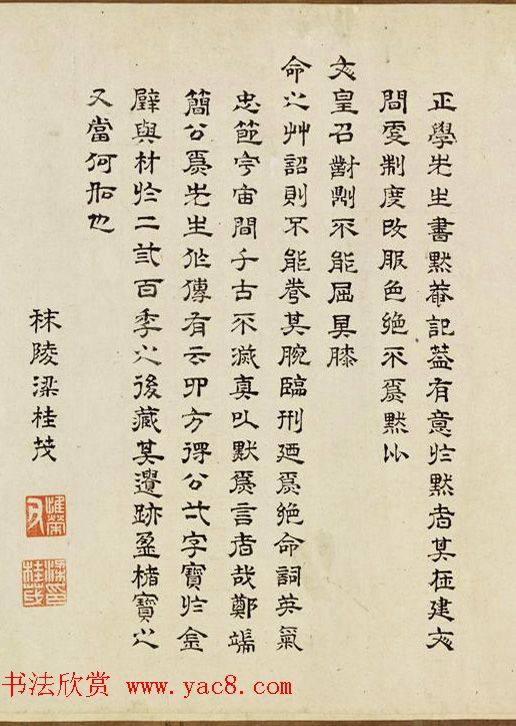 正學先生書默菴記蓋有意於默者其在建文
間變制度改服色絕不爲默比
文皇召對則不能屈其膝
命之艸詔則不能卷其腕臨刑廼爲絕命詞英氣
忠節宇宙間千古不滅真以默爲言者哉鄭端
簡公爲先生作傳有云 方得公弌字寶於金
璧與材於二弍百季之後藏其遺跡盈楮寶之
又當何如也
秣陵梁桂茂
梁印桂茂
书法欣赏 www.yac8.com